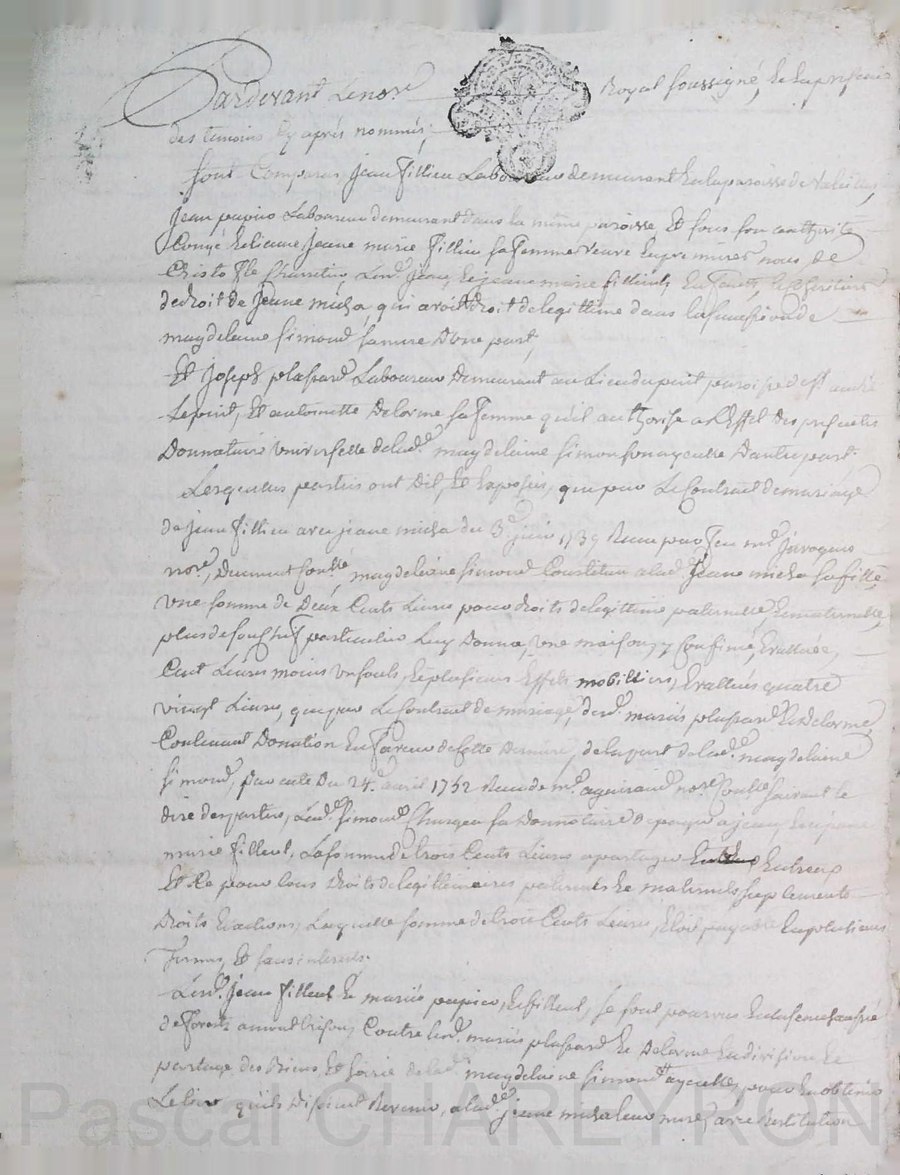 Pardevant Le no.re Royal soussigné, Et En presence
des temoins Cy aprés nommés;
Sont Comparus Jean fillieu Laboureur demeurant En la paroisse de
Jean pupier Laboureur demeurant dans la même paroisse Et sous son authorité
Congé Jeane marie fillieu sa femme veuve En premieres noces de
Christofle Lesd. Jean, Et jeane marie fillieul, Enfants, Et heritiers
de droit de Jeane micha, qui avoit droit de legittime dans la succession de
magdelaine Simond sa mere D'une part,
Et Joseph plassard Laboureur Demeurant au Lieu du puit paroisse de st andré
Le puit, Et antoinette Delorme sa femme qu'il authorise a L'Effet des presentes
Donnataire universelle de lad.e magdelaine simon son ayeulle D'autre part.
Lesquelles parties ont Dit, Et Exposés, que par Le Contrat de mariage
de jean fillieu avec jeane micha du 3e juin 1739 Recu par feu me javogues
no.re, Deument Conllé, magdelaine simond Constitua a lad.e Jeane micha sa fille
une somme de Deux Cents Livres pour droits de legittime paternelle, Et maternelle,
plus de son Chef particulier Luy Donna une maison, y Confinée, Evalluée,
Cent Livres moins un sould, Et plusieurs Effets mobilliers, Evallués quatre
vingt Livres, que par Le Contrat de mariage, desd. mariés plassard Et Delorme
Contenant Donation En faveur de Cette Derniere, de la part de lad.e magdelaine
simond, par acte Du 24e avril 1752 Recu de me no.re Conllé suivant le
dire des parties, Lad.e Simond Chargea sa Donnataire De payer a jean, Et jeane
marie fillieul, La somme de trois Cents Livres a partager Entreux
Et Ce pour tous Droits de legittimaires paternels Et maternels suplements
Droits Et actions, Laquelle somme de trois Cents Livres, Etoit payable En plusieurs
Termes, Et sans interets.
Lesd. Jean fillieul Et mariés pupier, Et fillieul, se sont pourvus En la senechaussée
de Forets Contre lesd. mariés plassard Et Delorme En division Et
partage des Biens Et hoirie de lad.e magdelaine simond ayeulle, pour En obtenir
Le tiers qu'ils Disoient Revenir, a lad.e jeane micha leur mere, avec Restitution
Pascal CHAREYRON